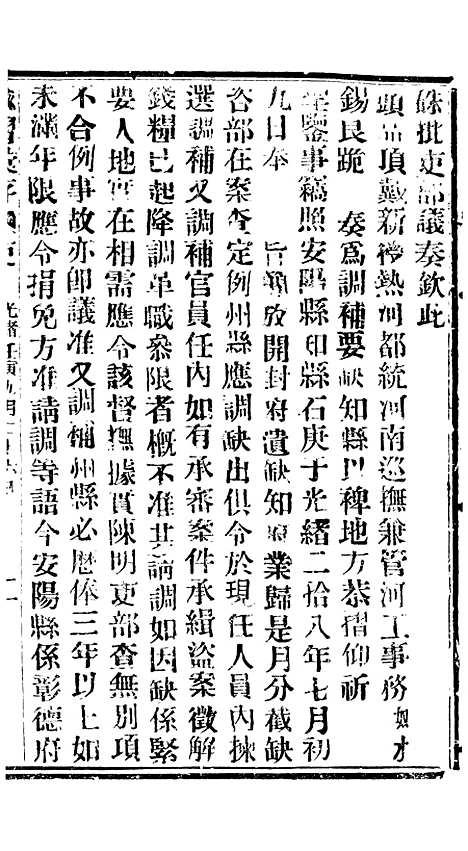 硃批吏部議奏欽此
頭品頂戴新授熱河都統河南巡撫兼管河工事務奴才
錫良跪 奏爲調補要缺知縣以裨地方恭摺仰祈
聖鑒事竊照安陽縣知縣石庚于光緒二拾八年七月初
九日奉 旨補放開封府遺缺知府業歸是月分截缺
咨部在案查定例州縣應調缺出俱令於現任人員內揀
選調補又調補官員任內如有承審案件承緝盜案徵解
錢糧已起降調革職參限者概不准其請調如因缺係緊
要人地實在相需應令該督撫據實陳明吏部查無別項
不合例事故亦卽議准又調補州縣必歷俸三年以上如
未滿年限應令捐免方准請調等語今安陽縣係彰德府
光緒任寅